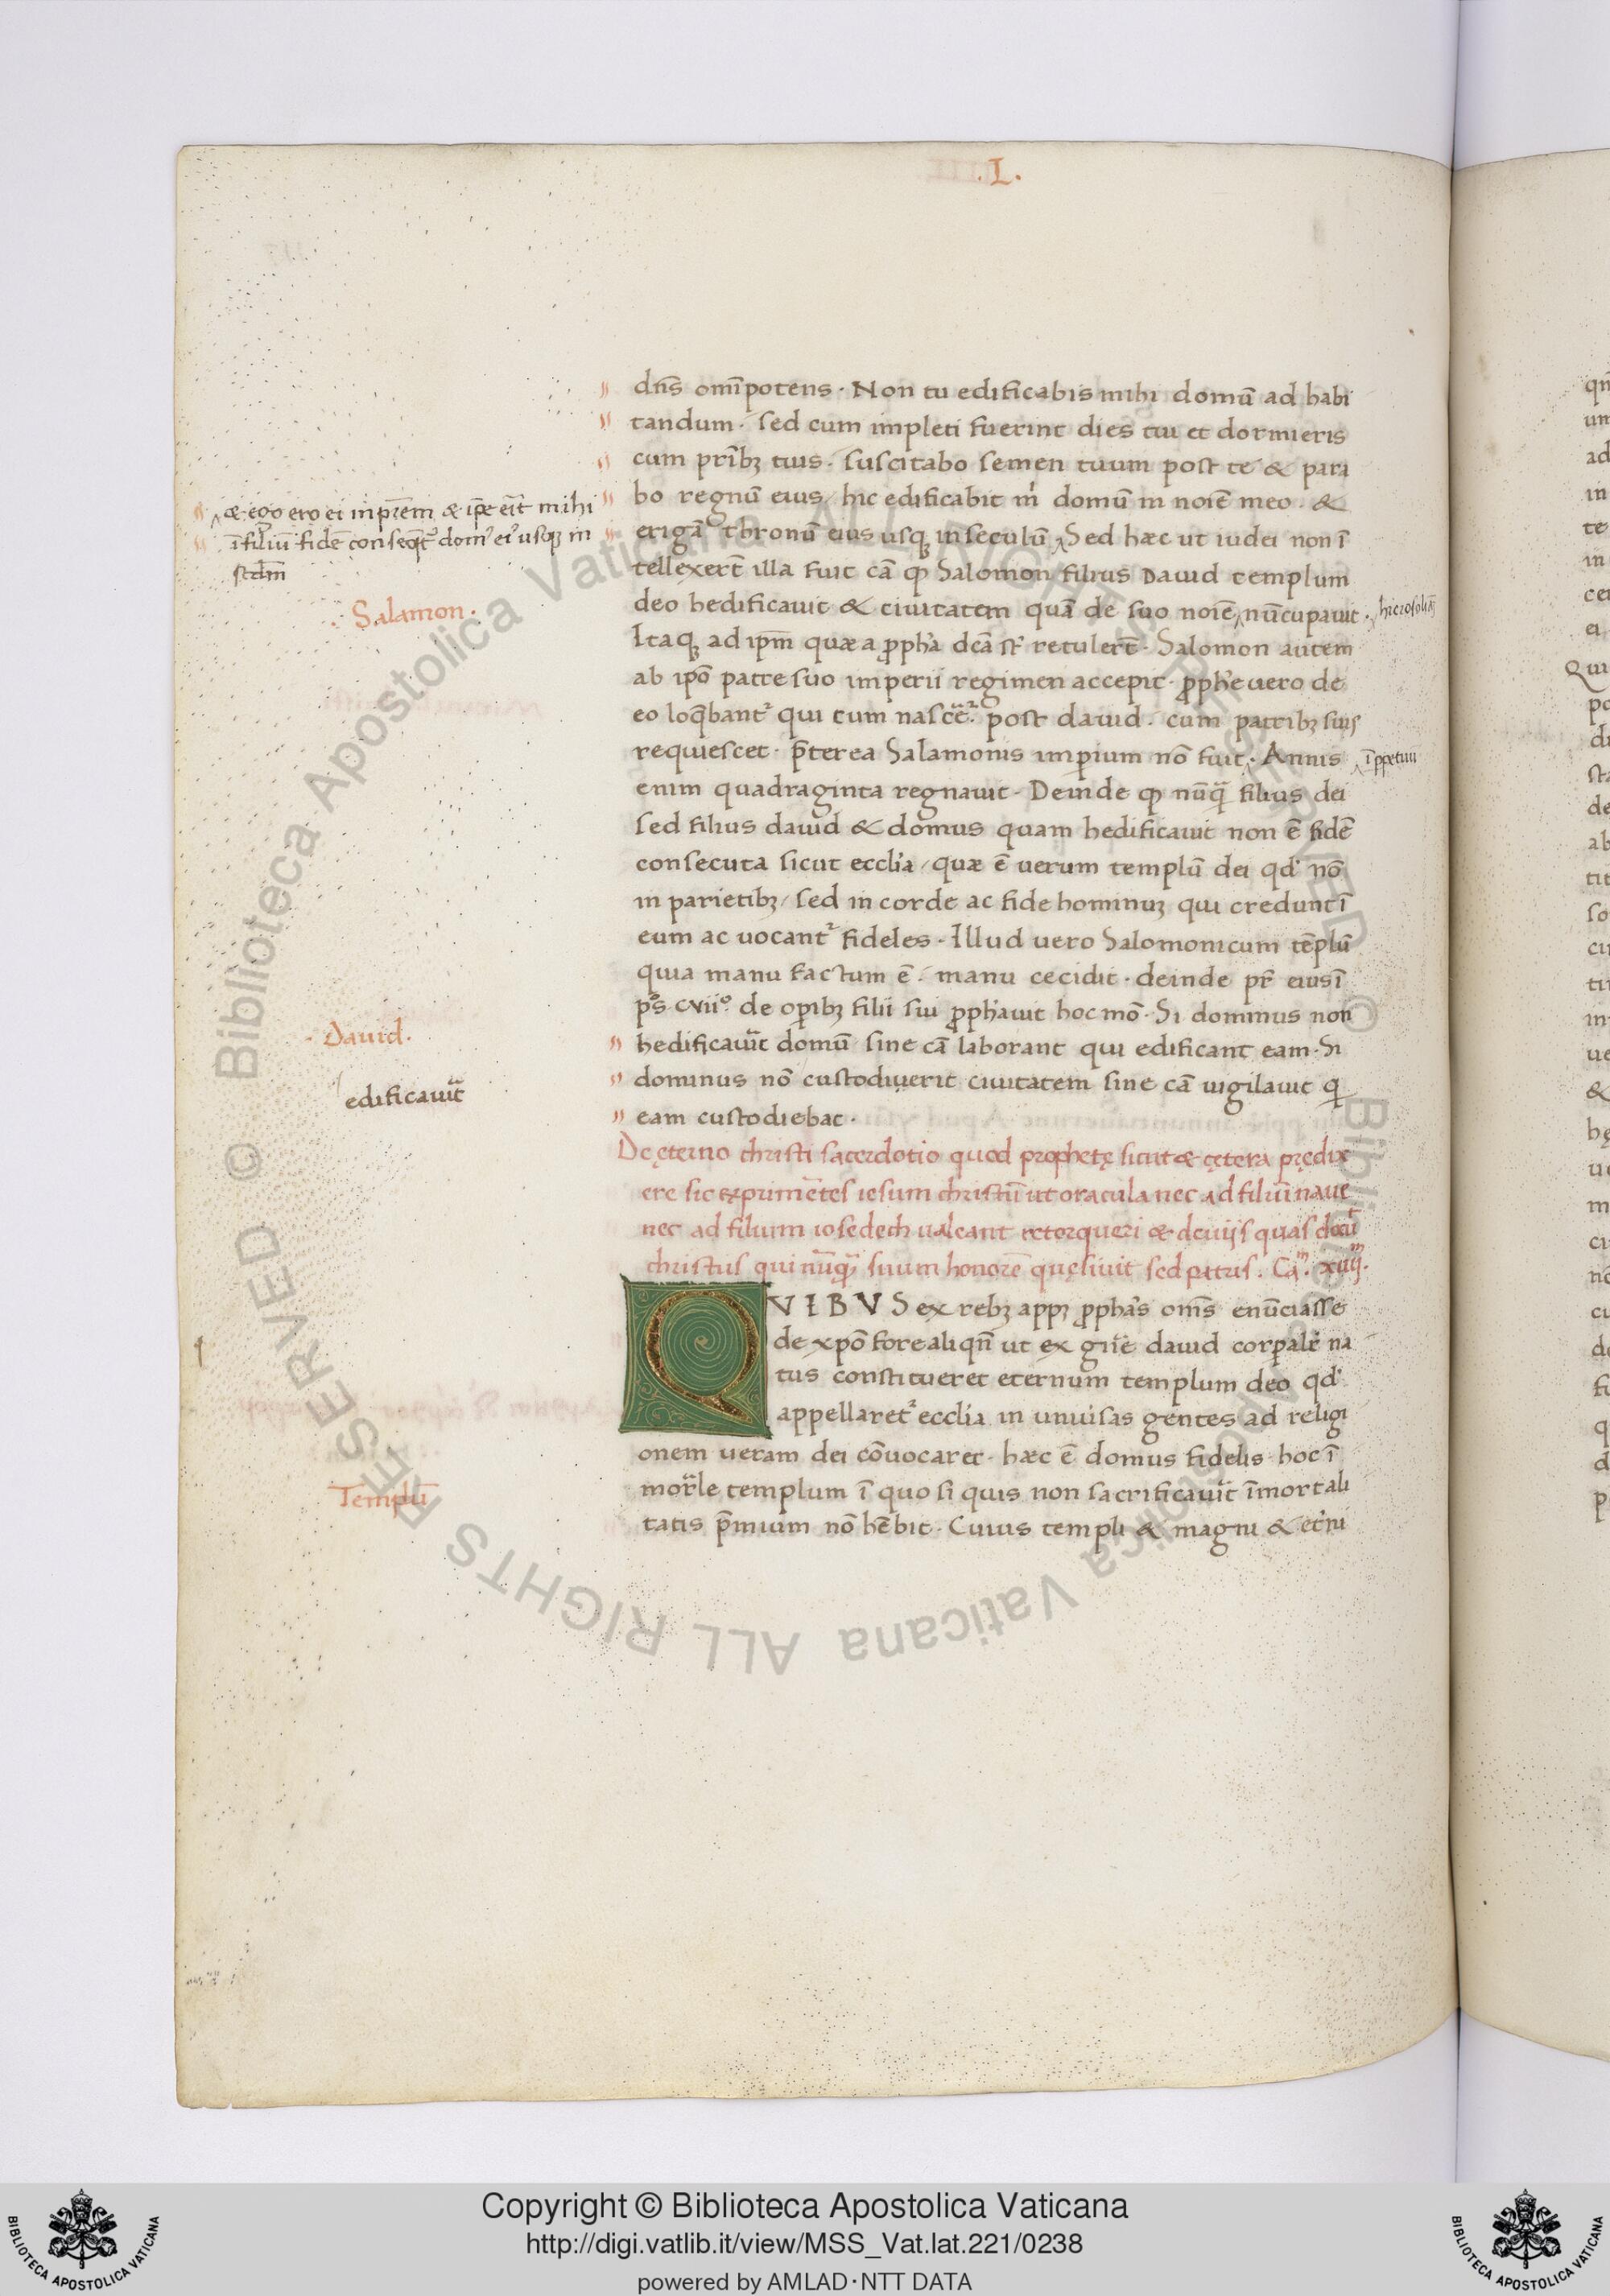 .L.
dn̄s om̄ipotens · Non tu edificabis mihi domū ad habi
tandum · sed cum impleti fuerint dies tui et dormieris
cum pr̄ibꝫ tuis · suscitabo semen tuum post te & para
bo regnū eius / hic edificabit m̄ domū in noīe meo · &
erigā thronū eius usqꝫ in seculū ‸ Sed hæc ut iudei non ī
tellexer̄t illa fuit cā ꝙ Salomon filius David templum
deo hedificavit & civitatem quā de suo noīe ‸ nūcupavit ·
Itaqꝫ ad ip̄m quæ a ꝓpha dcā st̄ retuler̄t · Salomon autem
ab ip̄o patre suo imperii regimen accepit · ꝓphe vero de
eo loq̄bant᷑ qui tum nascet᷑ · post david · cum patribꝫ suis
requiescet · p̄terea Salamonis imꝑium nō fuit ‸ · Annis
enim quadraginta regnavit · Deinde ꝙ nūq̄ filius dei
sed filius david & domus quam hedificavit non ē fidē
consecuta sicut ecclīa / quæ ē verum templū dei qd̄ nō
in parietibꝫ / sed in corde ac fide hominuꝫ qui credunt ī
eum ac vocant᷑ fideles · Illud vero Salomonicum tēplū
quia manu factum ē · manu cecidit · deinde pr̄ eius ī
ps̊ cviiº de oꝑibꝫ filii sui ꝓphavit hoc mō · Si dominus non
hedificav̄it domū sine cā laborant qui edificant eam · Si
dominus nō custodiverit civitatem sine cā vigilavit q̄
eam custodiebat ·
De ęterno christi sacerdotio quod prophetę sicut & cętera prędix
ere sic exprimētes iesum christū ut oracula nec ad filiū nave
nec ad filium iosedech valeant retorqueri & de viis quas docuͭ
christus qui nūq̄ suum honorē quęsivit sed patris . Caᵐ. xiiijᵐ.
QVIBVS ex rebꝫ appꝫ ꝓphas om̄s enūciasse
de xpō fore aliqn̄ ut ex gn̄e david corꝑalr̄ na
tus constitueret eternum templum deo qd̄
appellaret᷑ ecclīa in univ̄sas gentes ad religi
onem veram dei cōvocaret · hæc ē domus fidelis · hoc ī
mor̄le templum ī quo si quis non sacrificav̄it īmortali
tatis p̄mium nō hēbit · Cuius templi & magni & et̄ni
‸ & ego ero ei in pr̄em & ip̄e er̄it mihi
ī filiū fidē conseq̄t᷑ dom᷒ ei᷒ usqꝫ in
sc̄lm
· Salamon ·
· David ·
edificav̄it
Templū
‸ hierosolimā
‸ ī ꝑpetuū
Copyright © Biblioteca Apostolica Vaticana
http://digi.vatlib.it/view/MSS_Vat.lat.221/0238
powered by AMLAD·NTT DATA
BIBLIOTECA APOSTOLICA VATICANA
BIBLIOTECA APOSTOLICA VATICANA
© Biblioteca Apostolica Vaticana ALL RIGHTS RESERVED